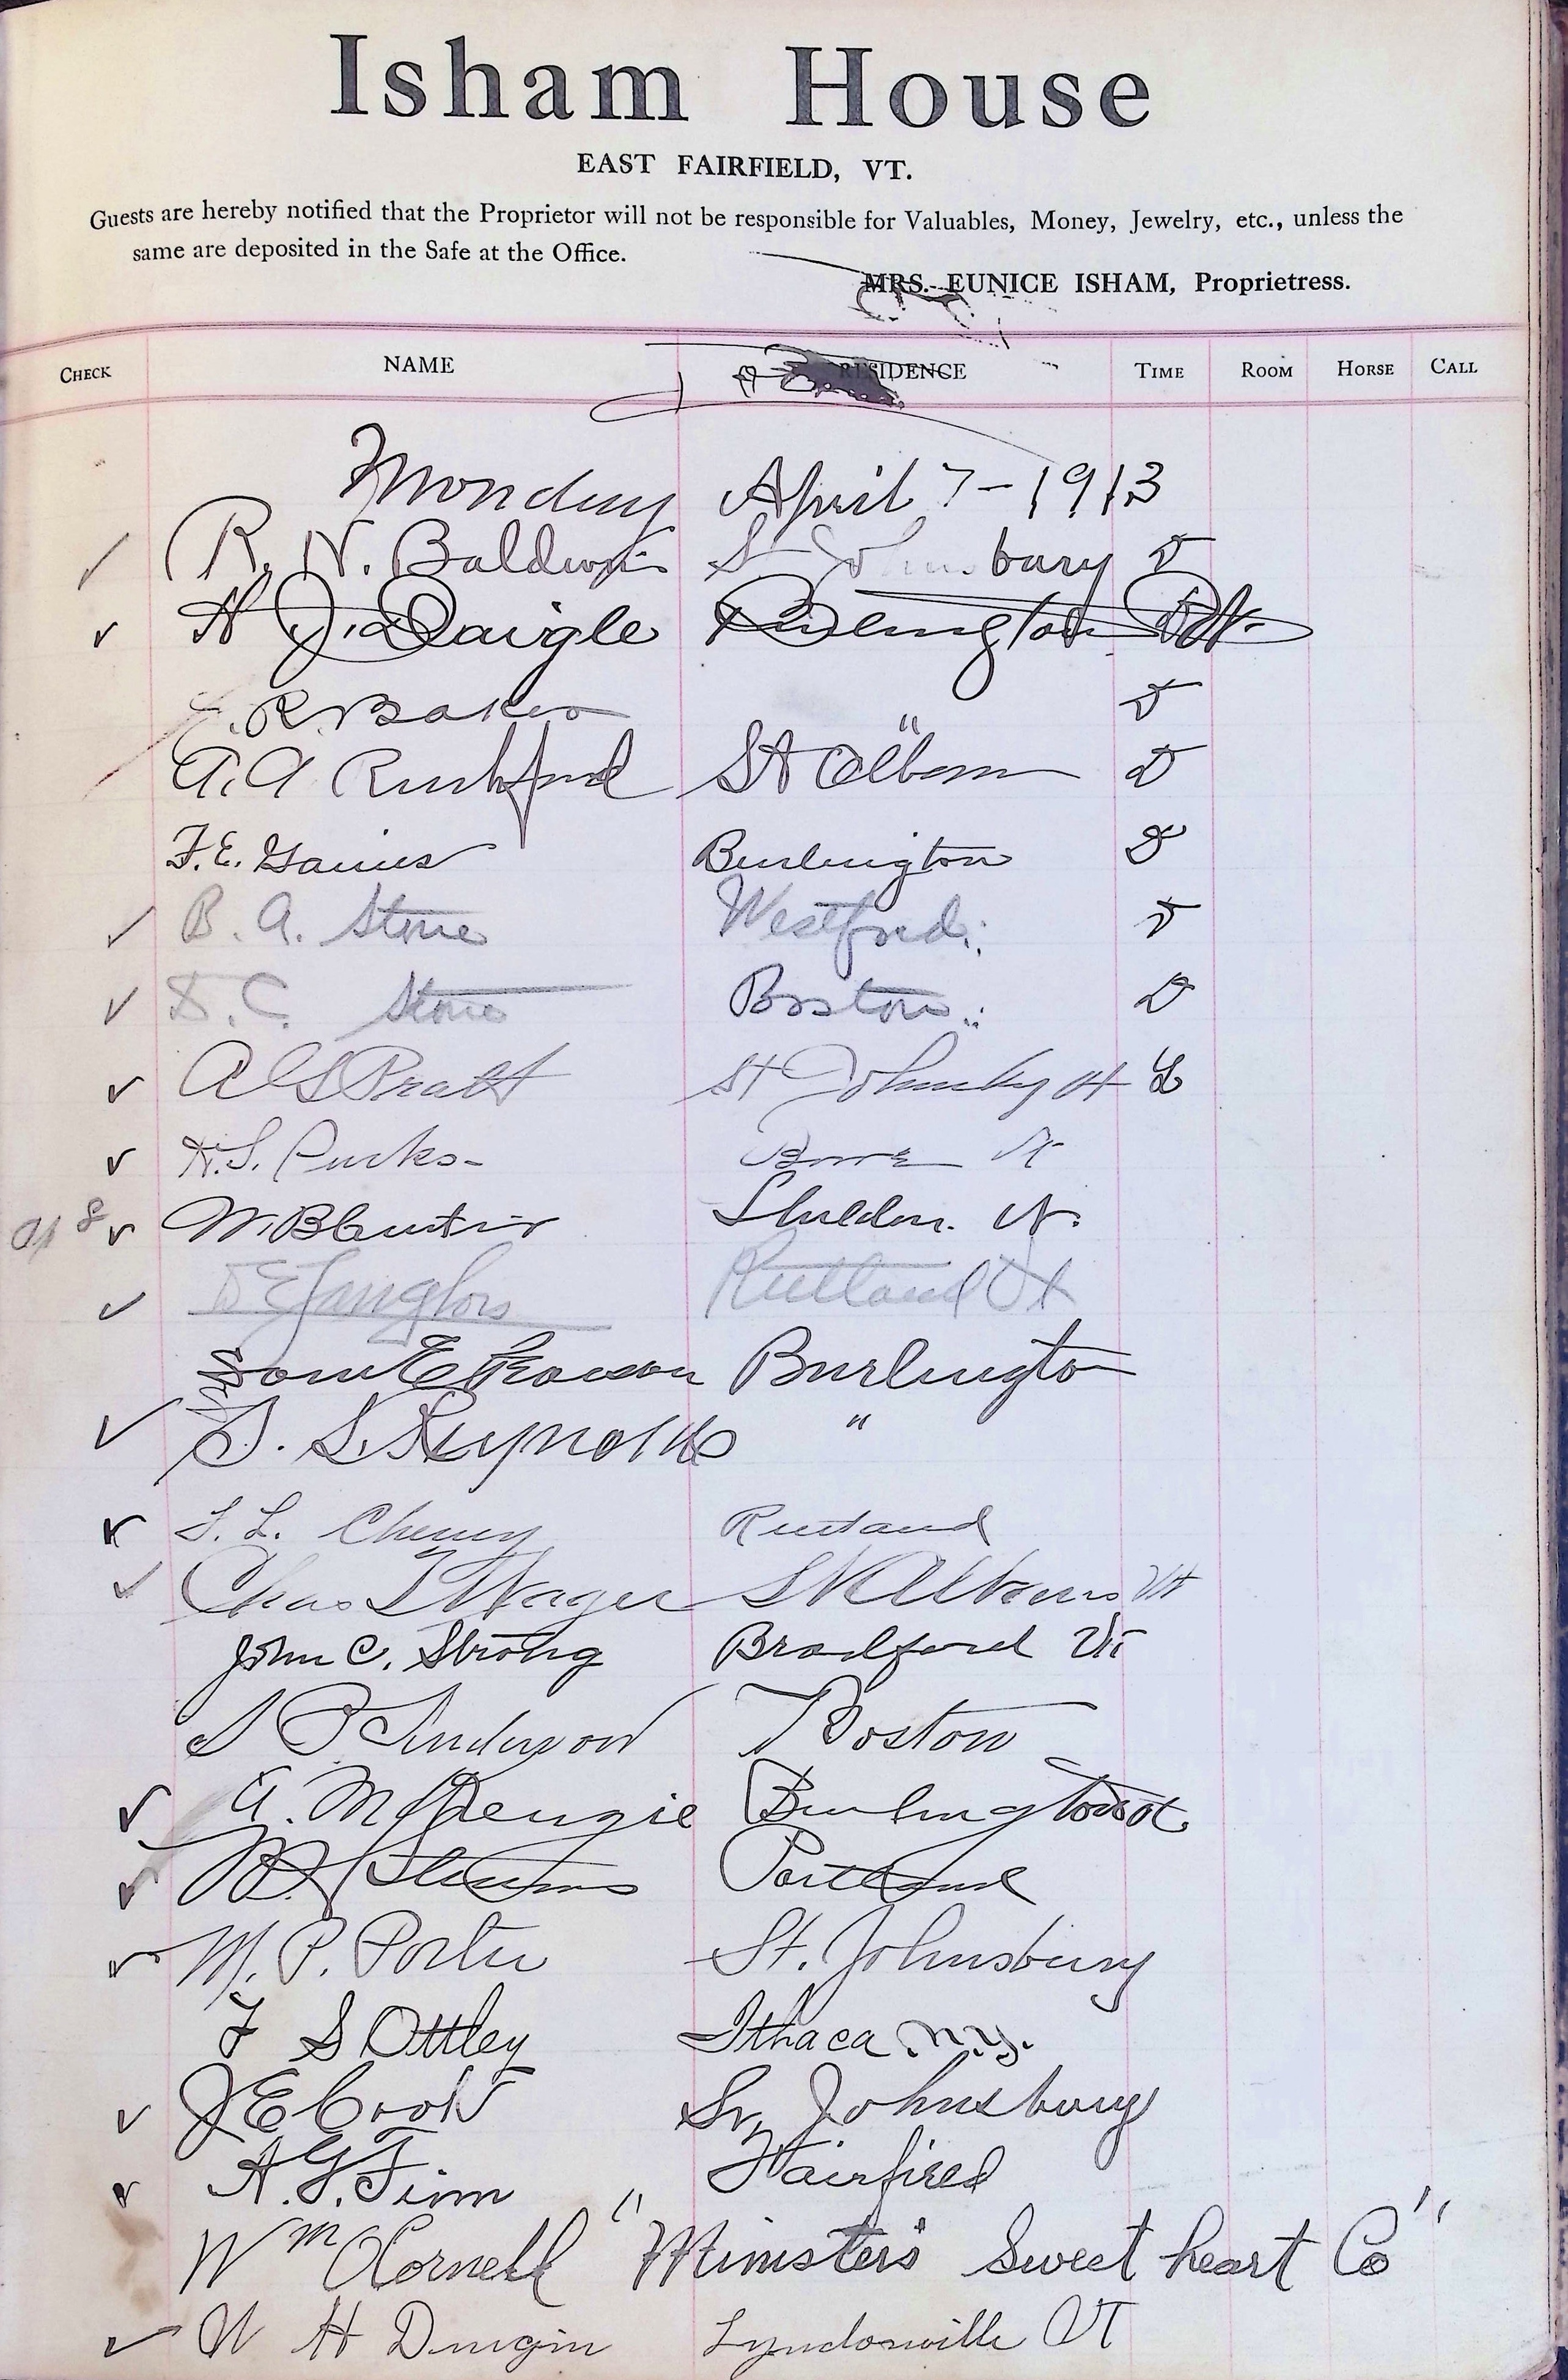 Isham House
EAST FAIRFIELD, VT.
Guests are hereby notified that the Proprietor will not be responsible for Valuables, Money, Jewelry, etc., unless the
same are deposited in the Safe at the Office.
MRS. EUNICE ISHAM, Proprietress.
CHECK NAME RESIDENCE TIME ROOM HORSE CALL
Monday April 7-1913
R. N. Baldwin St Johnsbury D
H J. Daigle Burlington Vt.
R. Baker " D
A. A Rushford St Albans D
F. E. Burlington D
B. A. Stone Westford D
D. C. Stone Boston D
Pratt St Johnsby Vt
H. S. Parks Barre Vt
Ap 8 W. B. Sheldon. Vt.
D E Langlois Rutland Vt
Sam E Burlington
S. L. Reynolds "
Rutland
Chas Wager St Albans Vt
John C. Strong Bradford Vt
S P Anderson Boston
A. McKenzie Burlington Vt
Stearns Portland
M. P. Porter St. Johnsbury
F S Ottley Ithaca N.Y.
J E Cook St Johnsbury
A. G. Finn Fairfield
Wm Cornell "Minister's Sweet heart Co"
W H Lyndonville VT